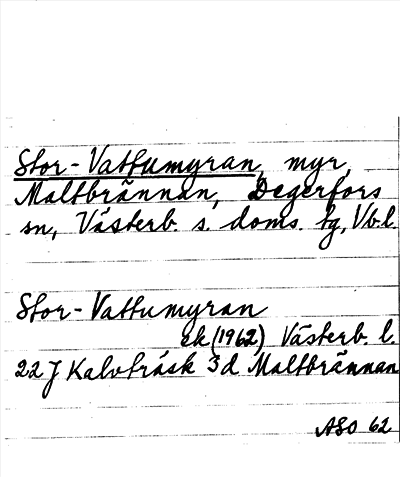 Stor-Vattumyran, myr,
Maltbrännan, Degerfors
sn, Västerb. s. doms. tg, Vb.l.
Stor-Vattumyran
Ek (1962) Västerb. l.
22J Kalvträsk 3d Maltbrännan
ASO 62